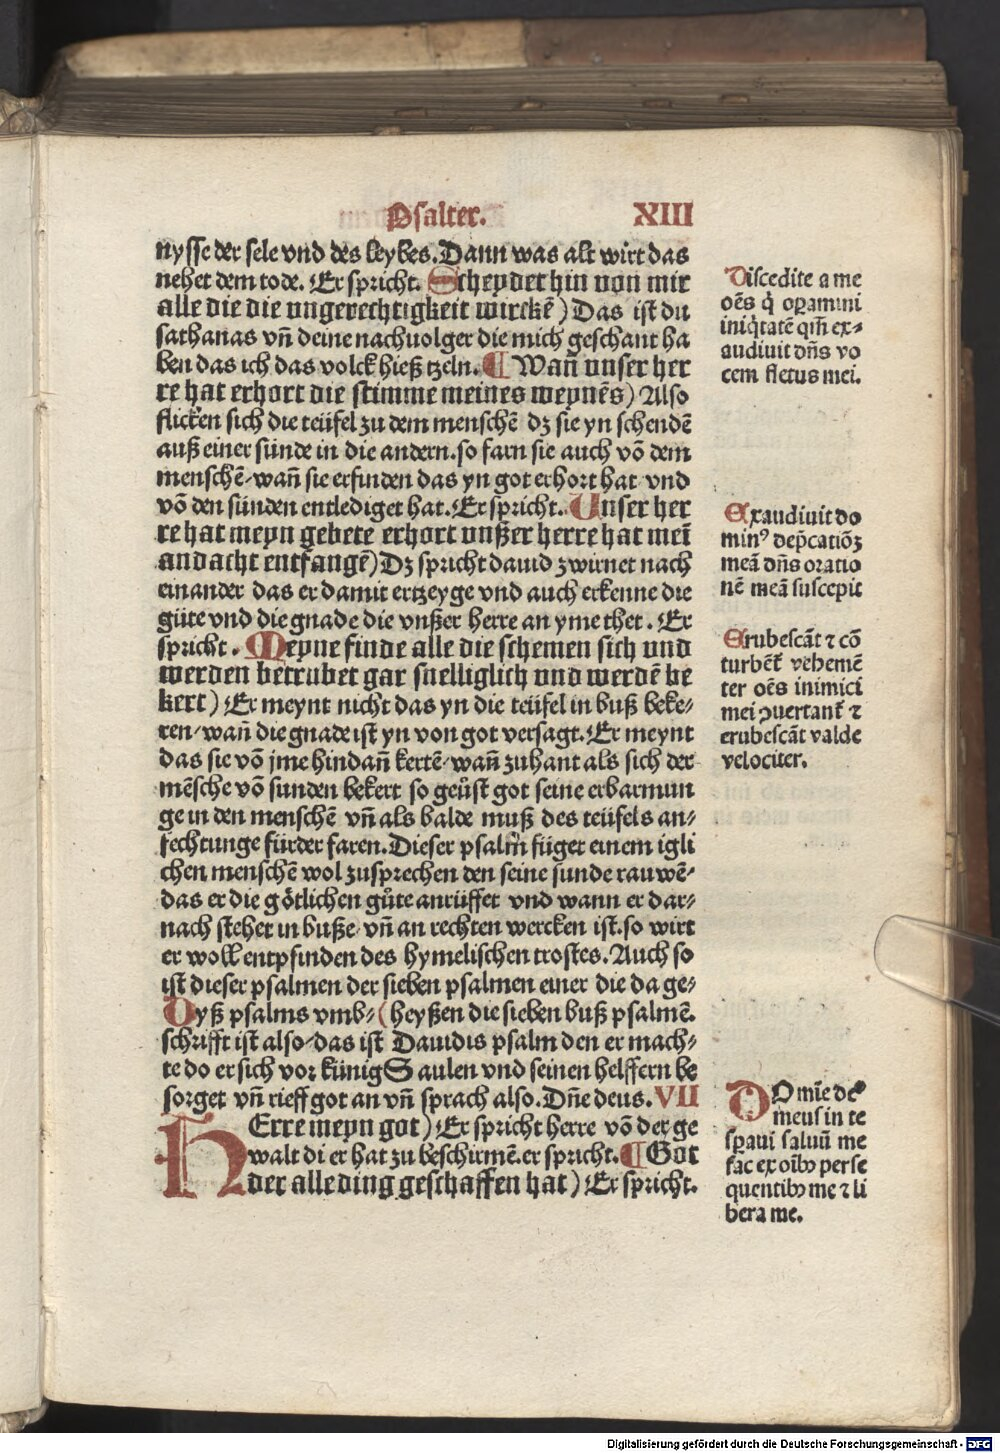 Psalter. XIII
nysse der sele vnd des leybes. Dann was alt wirt das
nehet dem tode. Er spricht. Scheydet hin von mir
alle die die vngerechtigkeit wirckē) Das ist du
sathanas vn̄ deine nachuolger die mich geschant ha
ben das ich das volck hieß tzeln. ¶ Wan̄ vnser her
re hat erhort die stimme meines weynēs) Also
flicken sich die teüfel zu dem menschē dz sie yn schendē
auß einer sünde in die andern. so farn sie auch vō dem
menschē/wan̄ sie erfinden das yn got erhort hat/vnd
vō den sünden entlediget hat. Er spricht. Unser her
re hat meyn gebete erhort vnßer herre hat mei̅
andacht entfangē) Dz spricht dauid zwirnet nach
einander das er damit ertzeyge vnd auch erkenne die
güte vnd die gnade die vnßer herre an yme thet. Er
spricht. Meyne finde alle die schemen sich vnd
werden betrubet gar snelliglich vnd werdē be
kert) Er meynt nicht das yn die teüfel in buß beke/
ren/wan̄ die gnade ist yn von got versagt. Er meynt
das sie vō jme hindan̄ kertē/wan̄ zuhant als sich der
mēsche vō sunden bekert so geůst got seine erbarmun
ge in den menschē vn̄ als balde muß des teüfels an/
fechtunge fürder faren. Dieser psalm̄ füget einem igli
chen menschē wol zusprechen den seine sunde rauwē/
das er die götlichen gůte anrüffet vnd wann er dar/
nach stehet in buße/vn̄ an rechten wercken ist. so wirt
er woll entpfinden des hymelischen trostes. Auch so
ist dieser psalmen der sieben psalmen einer die da ge/
Dyß psalms vmb/ (heyßen die sieben buß psalmē.
schrifft ist also/das ist Dauidis psalm den er mach/
te do er sich vor künig Saulen vnd seinen helffern be
sorget vn̄ rieff got an vn̄ sprach also. Dn̄e deus. VII
HErre meyn got) Er spricht herre vō der ge
walt di er hat zu beschirmē. er spricht. ¶ Got
der alle ding geschaffen hat) Er spricht.
Discedite a me
oēs q̇ oꝑamini
iniq̇tatē qm̄ ex/
audiuit dn̄s vo
cem fletus mei.
Exaudiuit do
minꝰ dep̄catiōꝫ
meā dn̄s oratio
nē meā suscepit
Erubescāt ⁊ cō
turbēt̄ vehemē
ter oēs inimici
mei ꝯuertant̄ ⁊
erubescāt valde
velociter.
DOmīe deꝰ
meus in te
sꝑaui saluū me
fac ex oībꝫ perse
quentibꝫ me ⁊ li
bera me.
Digitalisierung gefördert durch die Deutsche Forschungsgemeinschaft - DFG